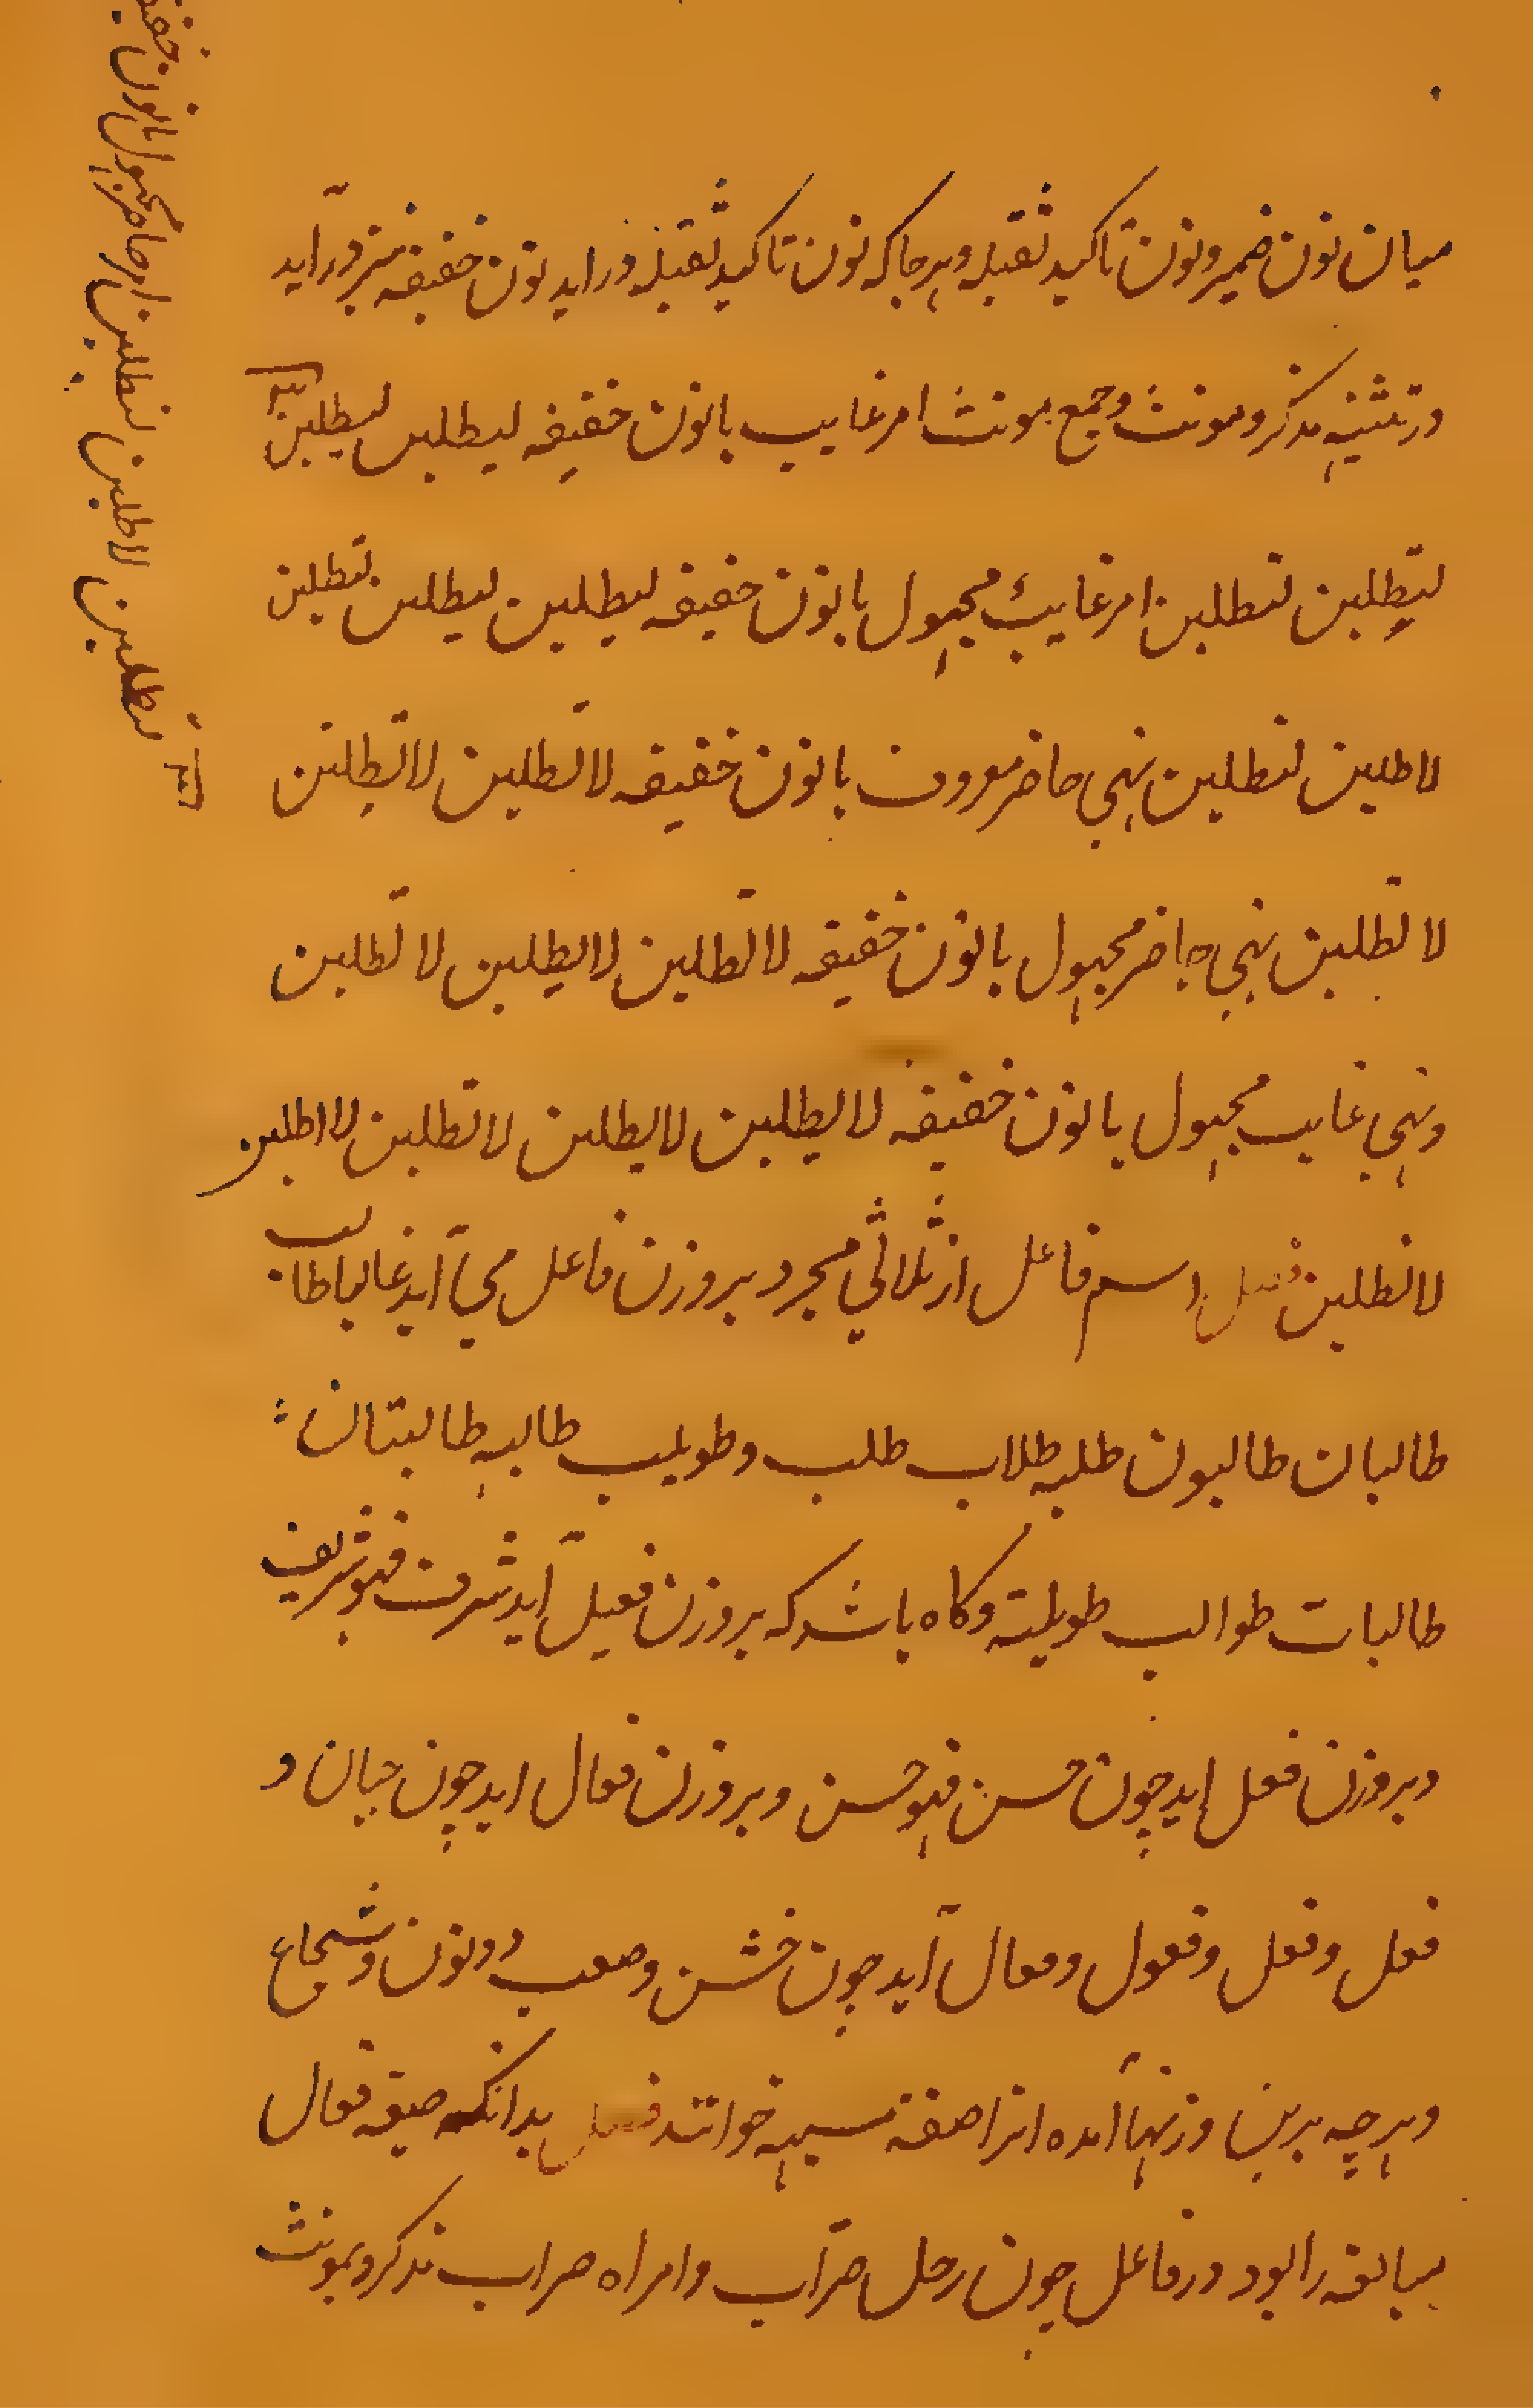 میان نون ضمیر و نون تاکید ثقیله و هر جا که نون تاکید ثقیله دراید نون خفیفه نیز درآید
در تثنیه مذکر و مونث و جمع مونث امر غایب با نون خفیفه لیطلبن لیطلبن
لتطلبن لنطلبن امر غایب مجهول با نون خفیفه لیطلبن لیطلبن لتطلبن
لاطلبن لنطلبن نهی حاضر معروف با نون خفیفه لا تطلبن لا تطلبن
لا تطلبن نهی حاضر مجهول با نون خفیفه لا تطلبن لا تطلبن لا تطلبن
و نهی غایب مجهول با نون خفیفه لا یطلبن لا یطلبن لا تطلبن لا اطلبن
لا نطلبن فصل اسم فاعل از ثلاثی مجرد بر وزن فاعل می آید غالبا طالب
طالبان طالبون طلبه طلاب طلب و طویلب طالبه طالبتان
طالبات طوالب طویلبة و کاه باشد که بر وزن فعیل آید شرف فهو شریف
و بر وزن فعل اید چون حسن فهو حسن و بر وزن فعال اید چون جبان و
فعل و فعل و فعول و فعال آید چون خشن و صعب و شجاع
و هر چه برین وزنها آمده انرا صفة مشبهه خوانند فصل بدانکه صیغه فعال
مبالغه را بود در فاعل چون رجل ضرّاب و امراه ضراب مذکر و مونث
امر حاضر مجهول با نون خفیفه
لتطلبن لتطلبن لاطلبن